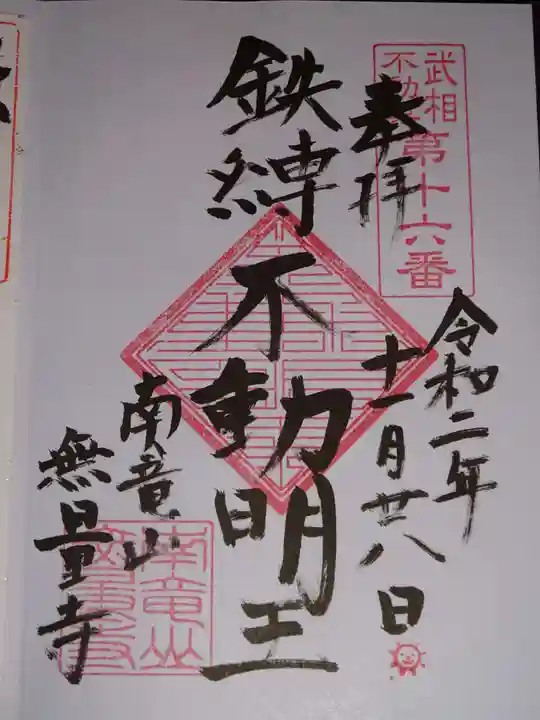 武相
不動尊
第十六番
奉拝
令和二年
十一月廿八日
鉄縛不動明王
南竜山
無量寺
南竜山
無量寺